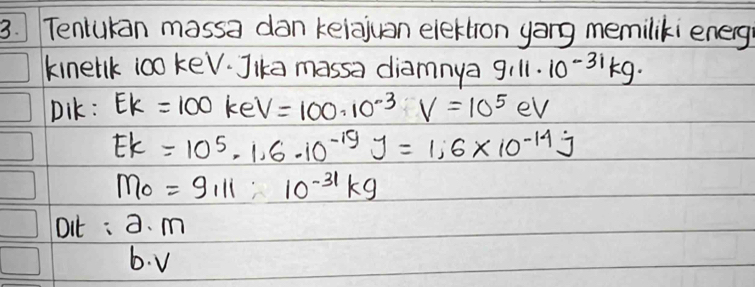 3. Tentukan massa dan kelajuan elektron yang memiliki energi
kinetik 100 keV. Jika massa diamnya 9,11 . 10⁻³¹ kg.
Dik : Ek = 100 keV = 100 . 10⁻³ V = 10⁵ eV
Ek = 10⁵ . 1,6 . 10⁻¹⁹ J = 1,6 × 10⁻¹⁴ J
Mo = 9,11 : 10⁻³¹ kg
Dit : a. m
b. v